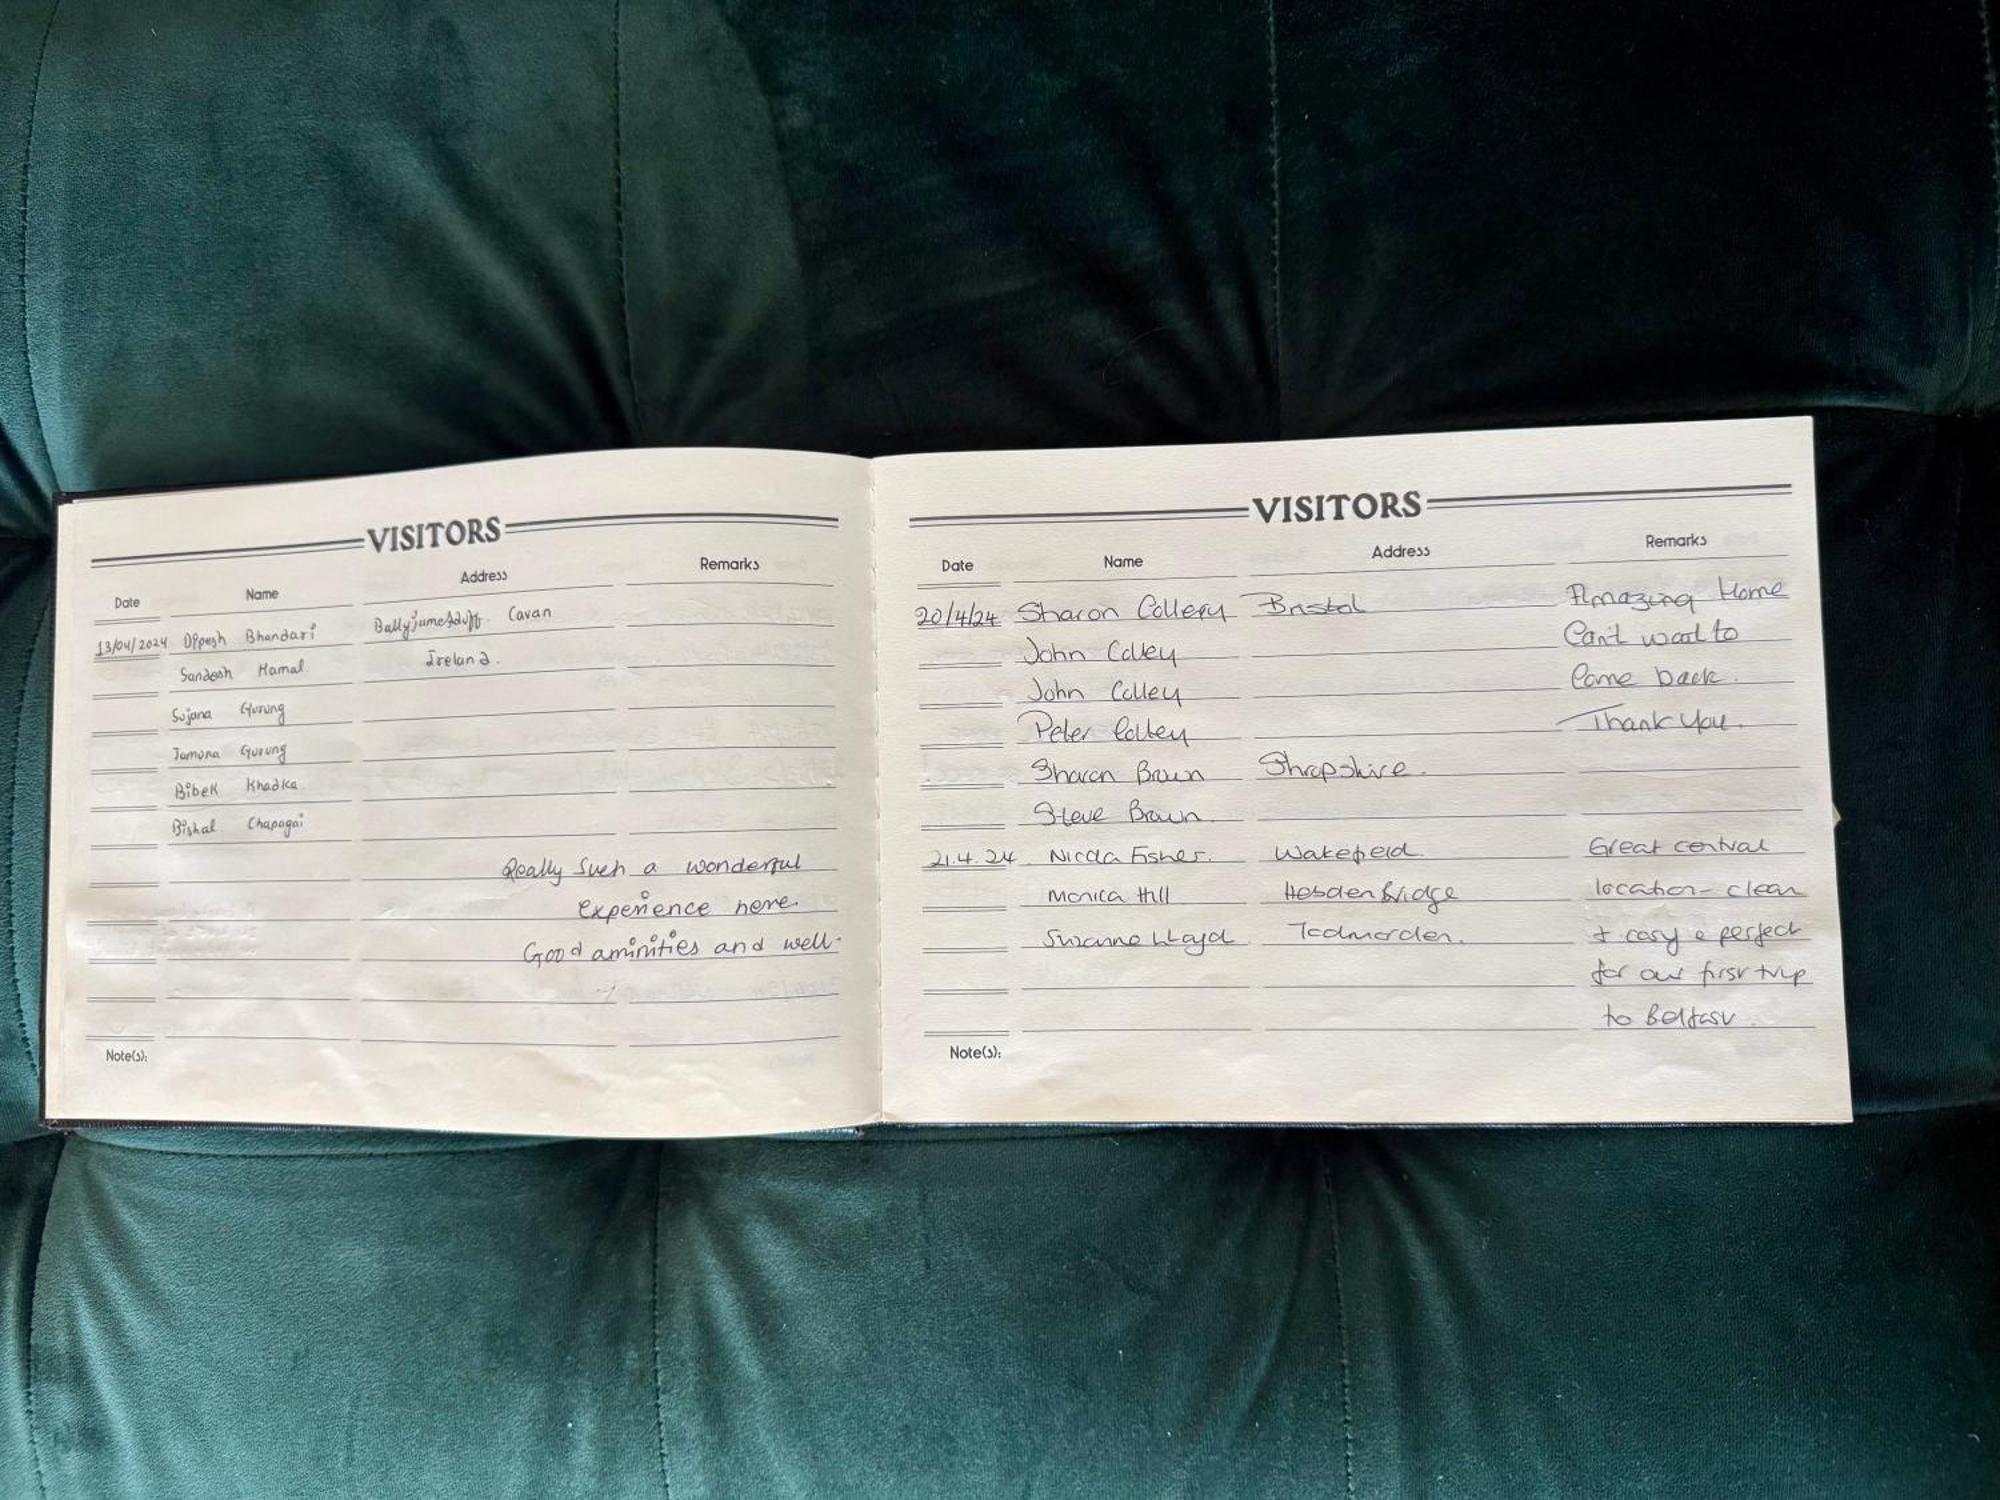 VISITORS
Date Name Address Remarks
13/04/2024 Dipesh Bhandari Ballyjamesduff Cavan
Sandesh Kamal Ireland.
Sujana Gurung
Jamona Gurung
Bibek Khadka
Bishal Chapagai
Really Such a wonderful
experience here.
Good aminities and well-
Note(s):
VISITORS
Date Name Address Remarks
20/4/24 Sharon Collery Bristol Amazing Home
John Colley Can't wait to
John Colley Come back.
Peter Colley Thank You.
Sharon Brown Shropshire.
Steve Brown.
21.4.24 Nicola Fisher. Wakefield. Great central
Monica Hill Hebden Bridge location - clean
Suzanne Lloyd Todmorden. + cosy & perfect
for our first trip
to Belfast.
Note(s):